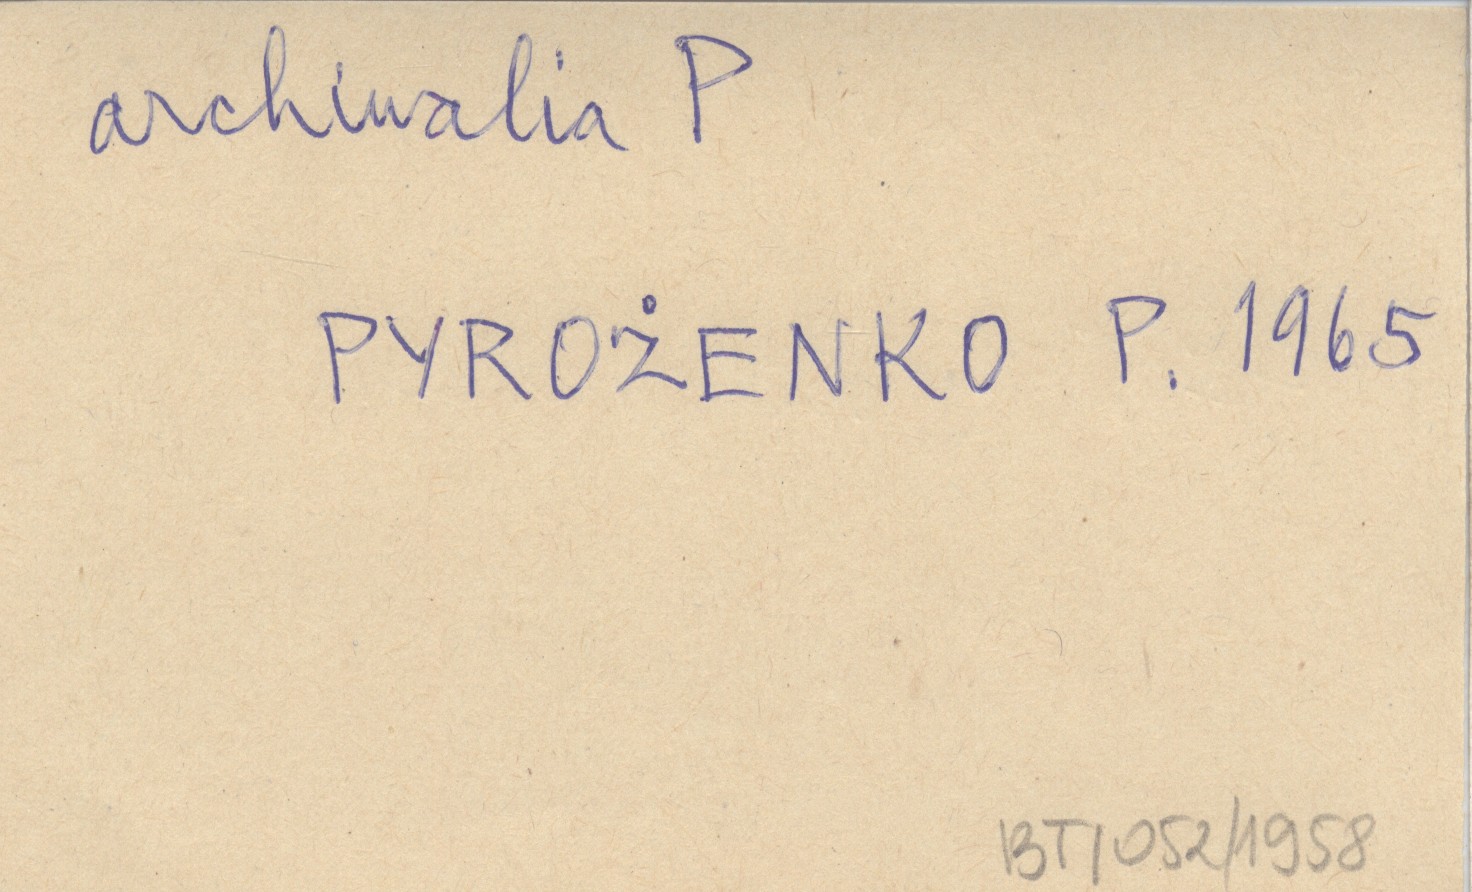 archiwalia P
PYROŻENKO P. 1965
BT/052/1958